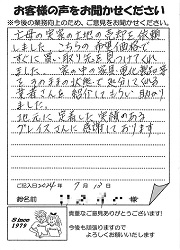 お客様の声をお聞かせください
※今後の業務向上のため、ご意見をお聞かせください。
亡母の実家の土地の売却を依頼
しました。こちらの希望価格で
すぐに買い取り先を見つけてくれ
ました。家の中の家具、
そのままの状態で処分してくれる
業者さんを紹介してもらい助かり
ました。
地元に定着した実績のある
プレイスさんに感謝しております
ご記入日 2014年 7月 10日
御名前
Since
1978
貴重なご意見ありがとうございます!
今後も頑張りますので
よろしくお願いいたします